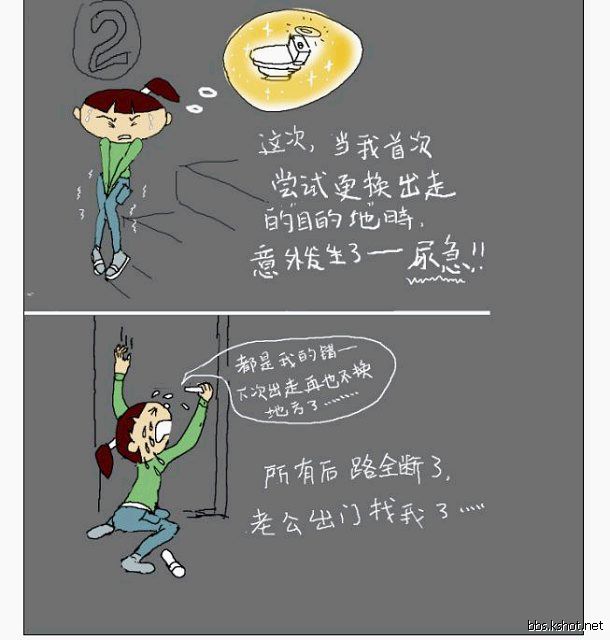 2
这次,当我首次
尝试更换出走
的"目的地"時,
意外发生了——尿急!!
都是我的错—
下次出走再也不换
地方了………
所有后路全断了,
老公出门找我了……
bbs.kshot.net